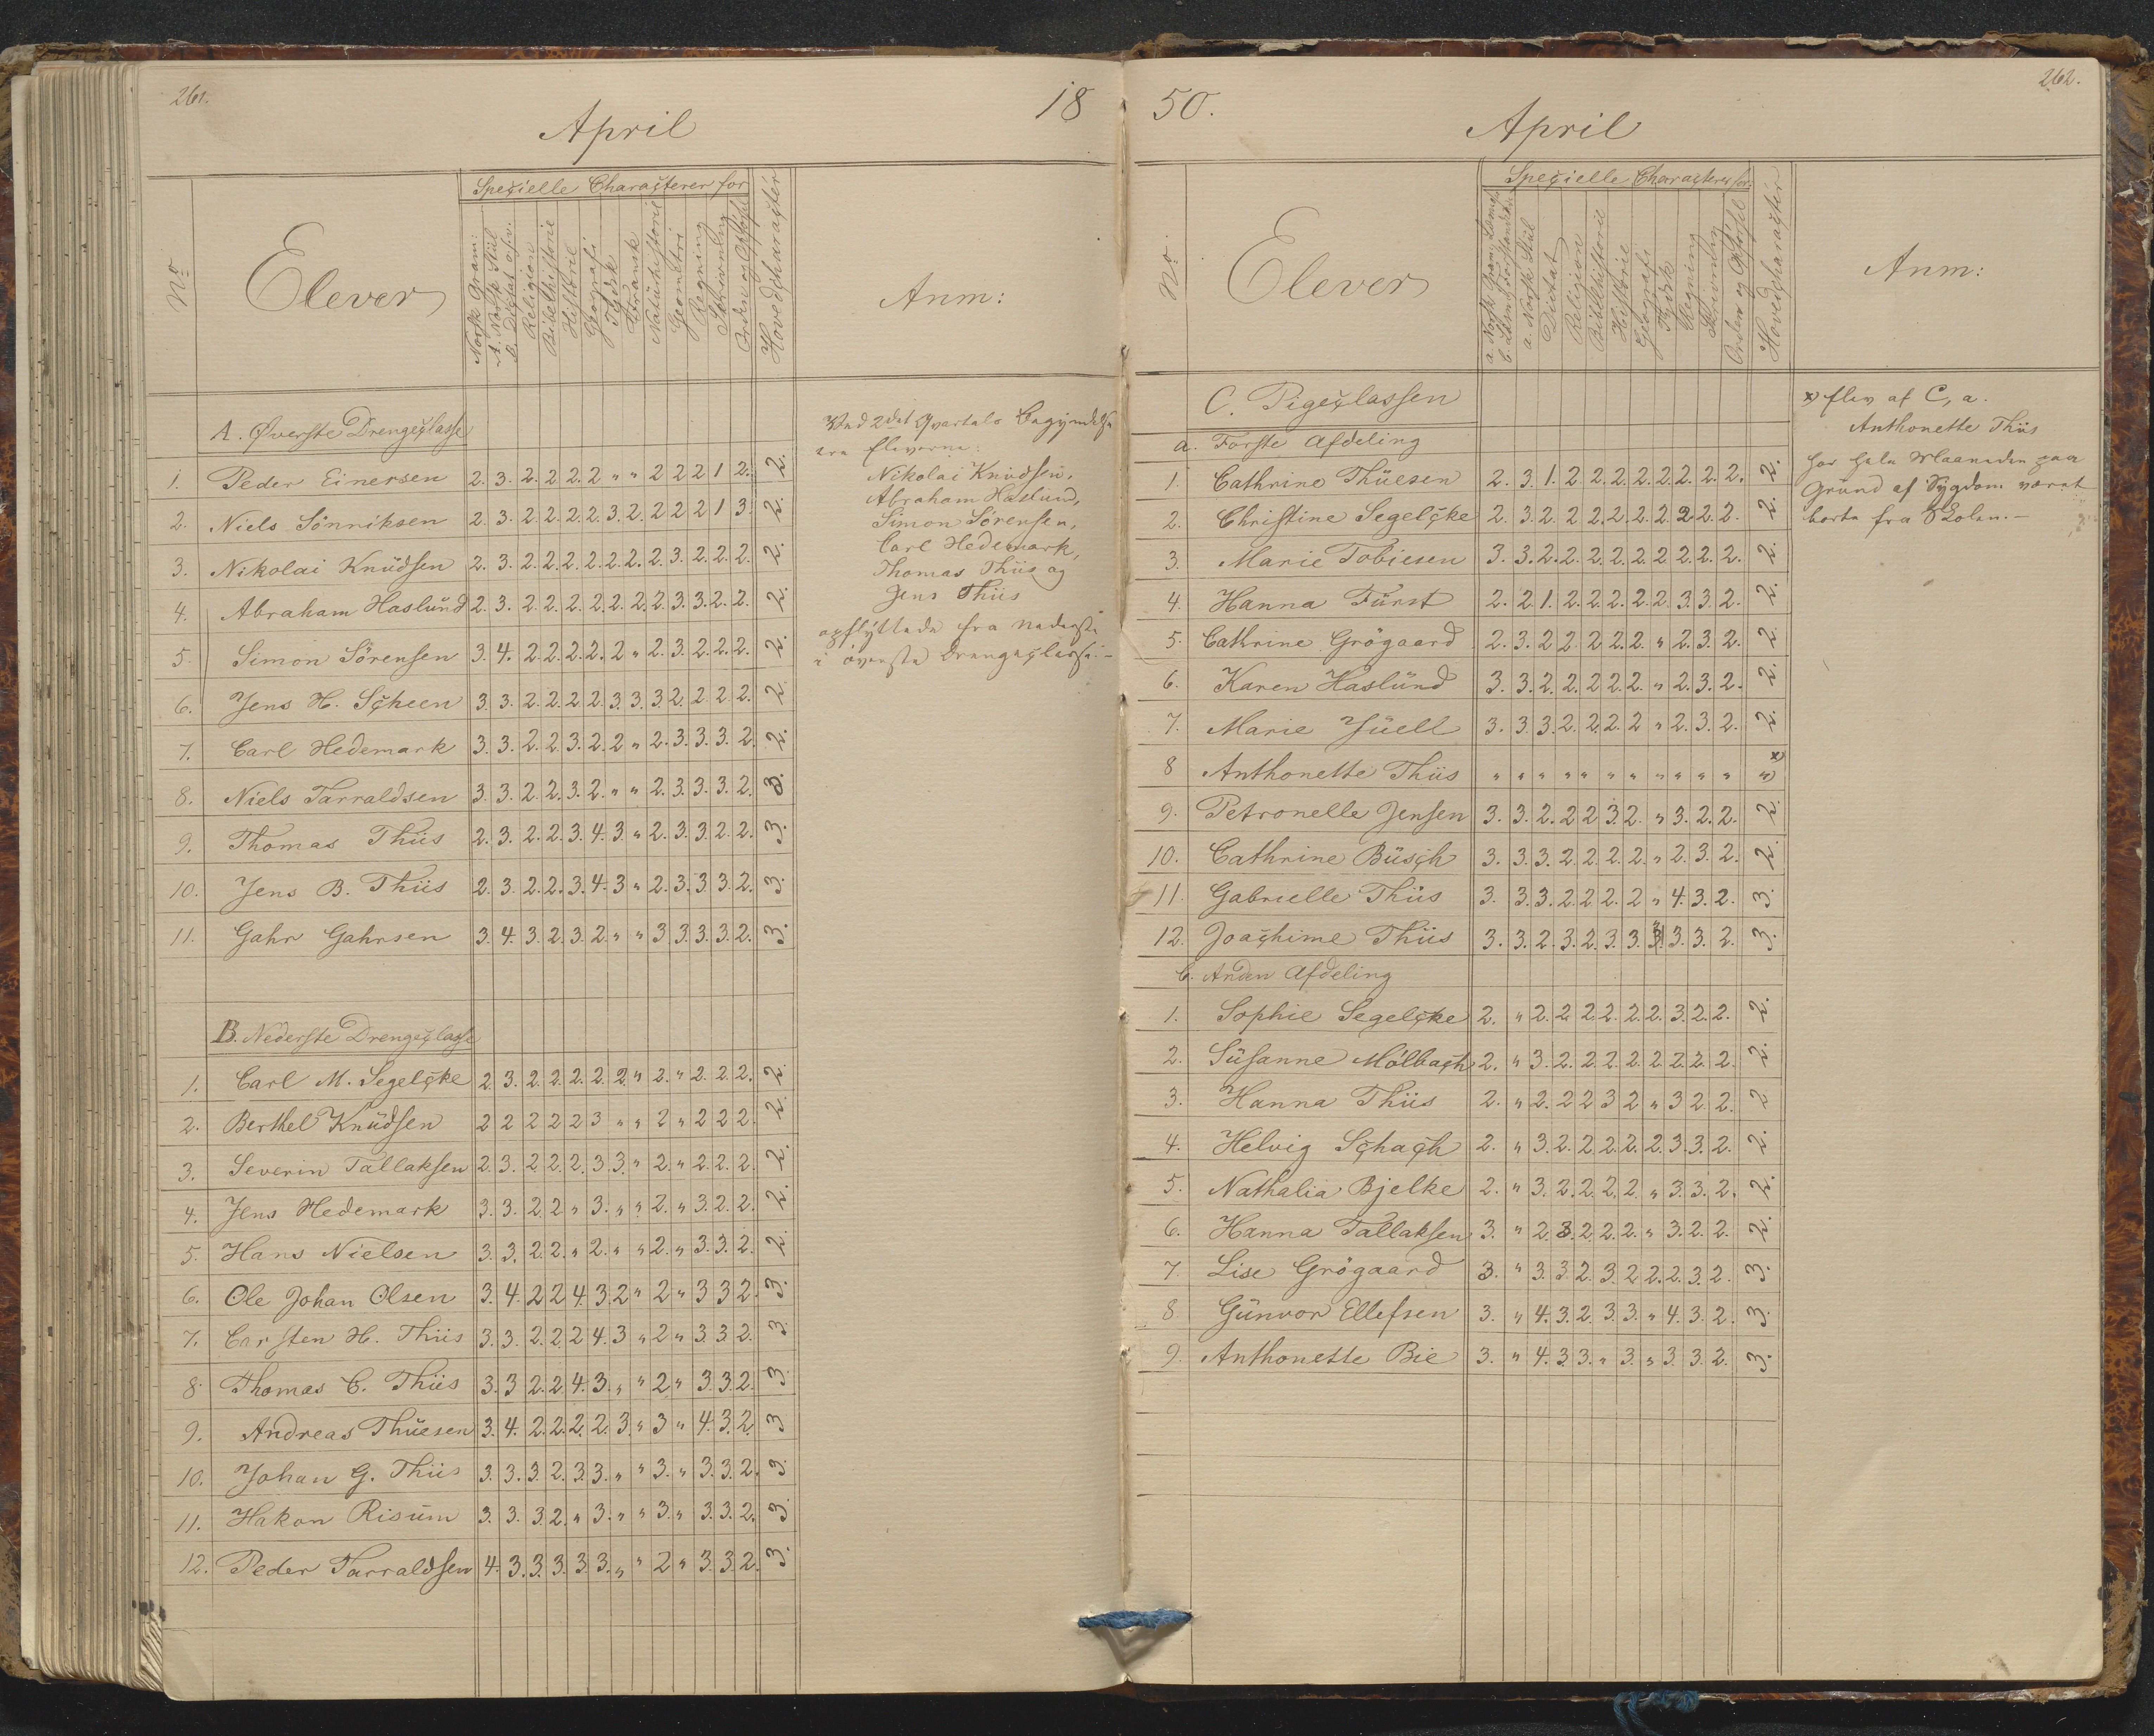 261.
April
18
Specielle Characterer for
No
Elever
Norsk Gram:
A. Norsk Stiil
B. Dictat osv.
Religion
Bibelhistorie
Historie
Geografi
Tydsk
Fransk
Naturhistorie
Geometri
Regning
Skrivning
Orden og Opførsel
Hovedcharacter
Anm:
A. Øverste Drengeclasse
1. Peder Einersen 2. 3. 2. 2. 2. 2 " " 2 2 2 1 2. 2.
2. Niels Sönniksen 2. 3. 2. 2. 2. 2. 3. 2. 2 2 2 1 3. 2.
3. Nikolai Knüdsen 2. 3. 2. 2. 2. 2. 2. 2. 2. 3. 2. 2. 2. 2.
4. Abraham Haslünd 2. 3. 2. 2. 2. 2. 2. 2. 2. 3. 3. 2. 2. 2.
5. Simon Sörensen 3. 4. 2. 2. 2. 2. 2 " 2. 3. 2. 2. 2. 2.
6. Jens H. Scheen 3. 3. 2. 2. 2 2. 3. 3. 3. 2. 2. 2. 2. 2.
7. Carl Hedemark 3. 3. 2. 2. 3. 2. 2 " 2. 3. 3. 3. 2. 2.
8. Niels Tarraldsen 3. 3. 2. 2. 3. 2. " " 2. 3. 3. 3. 2. 3.
9. Thomas Thiis 2. 3. 2. 2. 3. 4. 3. " 2. 3. 3. 2. 2. 3.
10. Jens B. Thiis 2. 3. 2. 2. 3. 4. 3 " 2. 3. 3. 3. 2. 3.
11. Gahr Gahrsen 3. 4. 3. 2. 3. 2. " " 3 3. 3. 3. 2. 3.
B. Nederste Drengeclasse
1. Carl M. Segelcke 2 3. 2. 2. 2. 2. 2. " 2. " 2. 2. 2. 2.
2. Berthel Knüdsen 2 2 2 2 2 3 " " 2 " 2 2 2. 2.
3. Severin Tallaksen 2. 3. 2. 2. 2. 3. 3. " 2. " 2. 2. 2. 2.
4. Jens Hedemark 3. 3. 2. 2 " 3. " " 2. " 3. 2. 2. 2.
5. Hans Nielsen 3. 3. 2. 2. " 2. " " 2. " 3. 3. 2. 2.
6. Ole Johan Olsen 3. 4. 2 2 4. 3. 2 " 2 " 3 3 2. 3.
7. Carsten H. Thiis 3. 3. 2. 2. 2 4. 3 " 2 " 3 3 2. 3.
8. Thomas C. Thiis 3. 3 2. 2. 4. 3. " " 2 " 3. 3. 2. 3.
9. Andreas Thüesen 3. 4. 2. 2. 2. 2. 3. " 3 " 4. 3. 2. 3
10. Johan G. Thiis 3. 3. 3. 2. 3. 3. " " 3. " 3. 3. 2. 3.
11. Hakon Risüm 3. 3. 3. 2. " 3. " " 3. " 3. 3. 2. 3.
12. Peder Tarraldsen 4. 3. 3. 3. 3. 3. " " 2 " 3. 3. 2. 3.
Ved 2det Qvartals Begyndelse
ere Eleverne:
Nikolai Knüdsen,
Abraham Haslund,
Simon Sörensen,
Carl Hedemark,
Thomas Thiis og
Jens Thiis
opflyttede fra nederste
i överste Drengeclasse.—
50.
262.
April
No.
Elever
Specielle Characterer for
a. Norsk Gram. Læsng
b. Læsn. Forstanden
a. Norsk Stiil
Dictat
Religion
Bibelhistorie
Historie
Geografi
Tydsk
Regning
Skrivning
Orden og Opførsel
Hovedcharacter
Anm:
C. Pigeclassen
a. Første Afdeling
1. Cathrine Thüesen 2. 3. 1. 2. 2. 2. 2. 2. 2. 2. 2. 2.
2. Christine Segelcke 2. 3. 2. 2 2. 2. 2. 2. 2 2. 2. 2.
3. Marie Tobiesen 3. 3. 2. 2. 2. 2. 2. 2 2. 2. 2. 2.
4. Hanna Fürst 2. 2 1. 2. 2. 2. 2. 2. 3. 3. 2. 2.
5. Cathrine Grögaard 2. 3. 2 2. 2. 2. 2. " 2. 3. 2. 2.
6. Karen Haslünd 3. 3. 2. 2. 2. 2. 2. " 2. 3. 2. 2.
7. Marie Jüell 3. 3. 3. 2. 2. 2. 2 " 2. 3. 2. 2.
8 Anthonette Thiis " " " " " " " " " " " " x
9. Petronelle Jensen 3. 3. 2. 2 2 3. 2. " 3. 2. 2. 2.
10. Cathrine Büsch 3. 3. 3. 2. 2. 2. 2. " 2. 3. 2. 2.
11. Gabrielle Thiis 3. 3. 3. 2. 2. 2. 2 " 4. 3. 2. 3.
12. Joachime Thiis 3. 3. 2. 3. 2. 3. 3. " 3. 3. 2. 3.
b. Anden Afdeling
1. Sophie Segelcke 2. " 2. 2. 2. 2. 2. 2. 3. 2. 2. 2.
2. Süsanne Mölbach 2. " 3. 2. 2. 2. 2. 2. 2. 2. 2. 2.
3. Hanna Thiis 2. " 2. 2 2 3 2 " 3 2 2. 2
4. Helvig Schach 2. " 3. 2. 2. 2. 2. 2. 3. 3. 2. 2.
5. Nathalia Bjelke 2. " 3. 2. 2. 2. 2. " 3. 3. 2. 2.
6. Hanna Tallaksen 3. " 2. 3. 2. 2. 2. " 3. 2. 2. 2.
7. Lise Grögaard 3. " 3. 3. 2. 3. 2. 2. 2. 3. 2. 3.
8 Günvor Ellefsen 3. " 4. 3. 2. 3. 3. " 4. 3. 2. 3.
9. Anthonette Bie 3. " 4. 3. 3. " 3. " 3. 3. 2. 3.
x) Elev af C, a.
Anthonette Thiis
har hele Maaneden paa
Grund af Sygdom været
borte fra Skolen.—